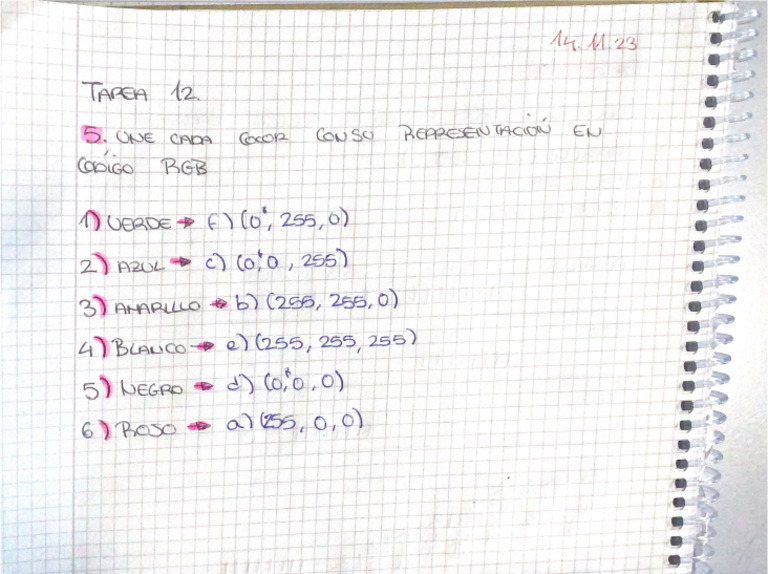 14.11.23
TAREA 12.
5. UNE CADA COLOR CON SU REPRESENTACIÓN EN
CÓDIGO RGB
1) VERDE → f) (0, 255, 0)
2) AZUL → c) (0, 0, 255)
3) AMARILLO → b) (255, 255, 0)
4) BLANCO → e) (255, 255, 255)
5) NEGRO → d) (0, 0, 0)
6) ROJO → a) (255, 0, 0)